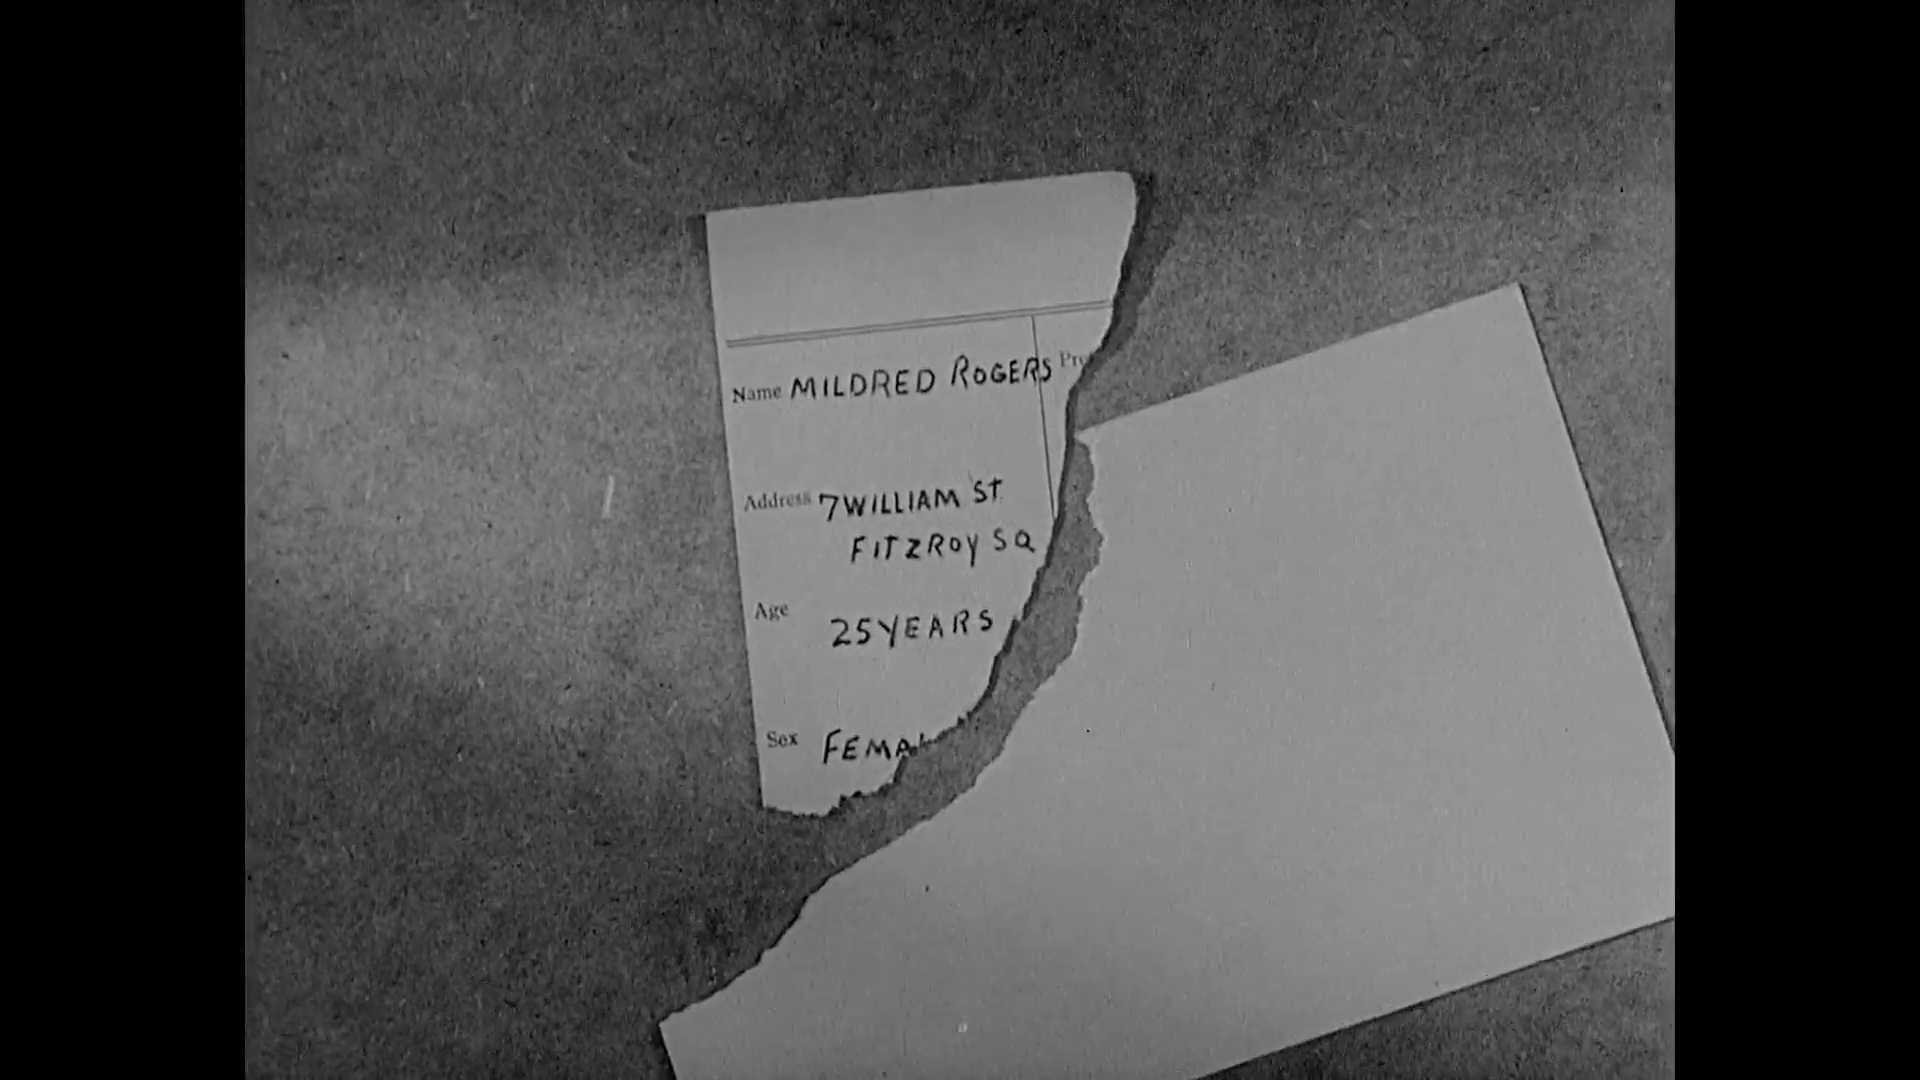 Name MILDRED ROGERS Pre
Address 7 WILLIAM ST
FITZROY SQ
Age 25 YEARS
Sex FEMA